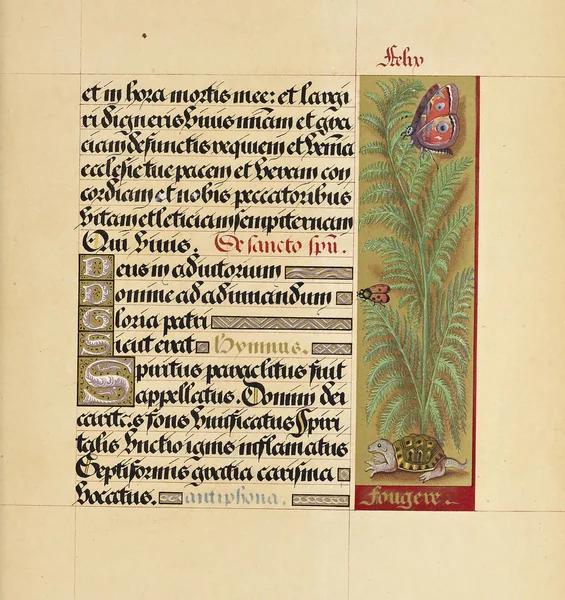 Felix
et in hora mortis mee: et largi
ri digneris vivis mīam et gra
ciam defunctis requiem et veniā
ecclesie tue pacem et veram con
cordiam et nobis peccatoribus
vitam et leticiam sempiternam
Qui vivis. De sancto spū.
Deus in adiutorium
Domine ad adiuuandum
Gloria patri
Sicut erat Hymnus.
Spiritus paraclitus fuit
appellatus. Donum dei
caritas fons viuificatus Spiri
talis vnctio ignis inflamatus
Septiformis gratia carisma
vocatus. antiphona.
Fougere.